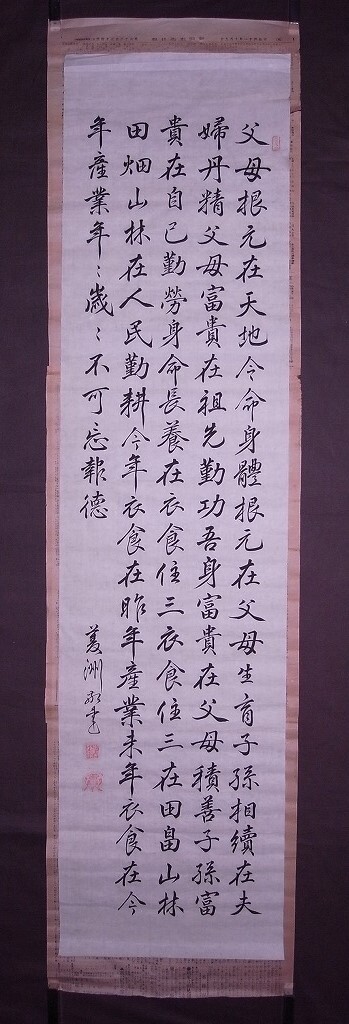 父母根元在天地令命身體根元在父母生育子孫相續在夫
婦丹精父母富貴在祖先勤功吾身富貴在父母積善子孫富
貴在自己勤勞身命長養在衣食住三衣食住三在田畠山林
田畑山林在人民勤耕今年衣食在昨年產業来年衣食在今
年產業年〻歲〻不可忘報德